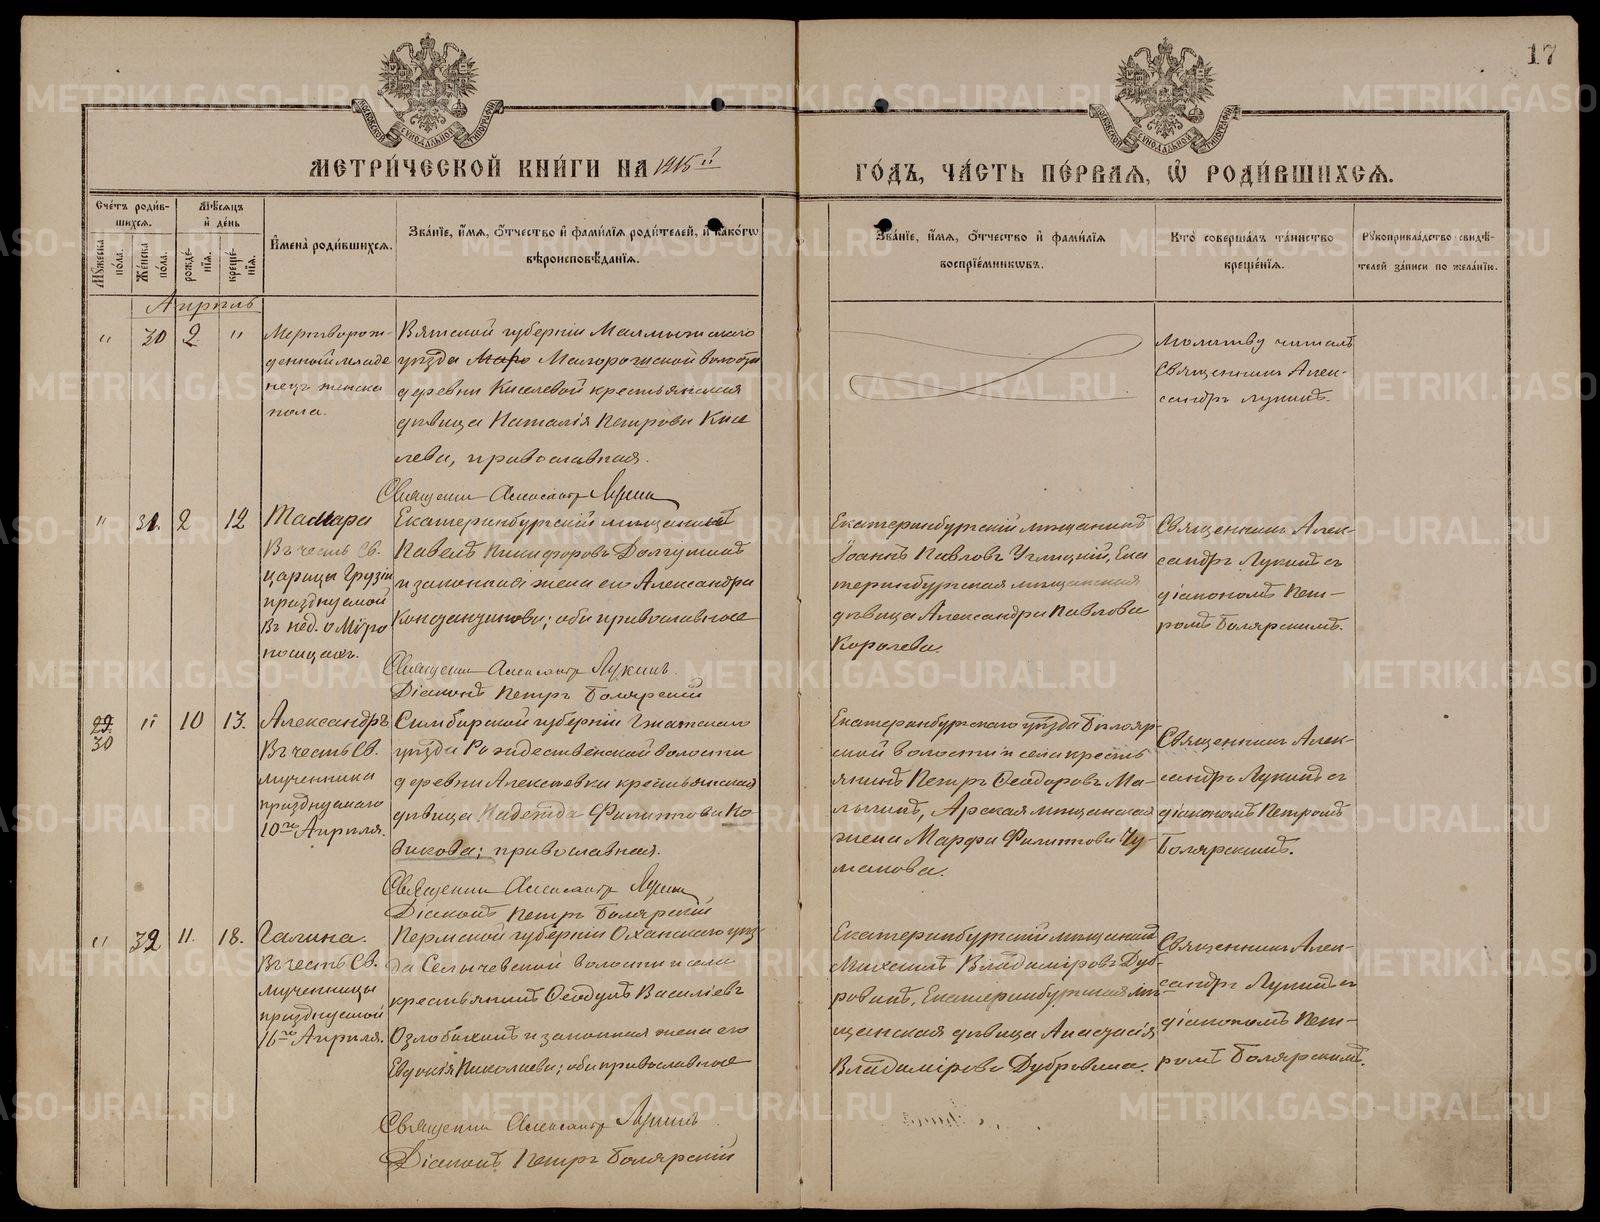 17
МЕТРИ́ЧЕСКОЙ КНИ́ГИ НА 1915й
ГО́ДЪ, ЧА́СТЬ ПЕ́РВАЯ, Ѡ҆ РОДИ́ВШИХСЯ.
Сче́тъ роди́в-
шихся.
Му́жеска по́ла.
Же́нска по́ла.
Мѣ́сяцъ
и҆ де́нь
рожде́-
нїя.
креще́-
нїя.
И҆мена̀ роди́вшихся.
Зва́нїе, и҆́мя, ѻ҆́тчество и҆ фами́лїя роди́телей, и҆ како́гѡ
вѣроисповѣ́данїя.
Зва́нїе, и҆́мя, ѻ҆́тчество и҆ фами́лїя
воспрїе́мникѡвъ.
Кто̀ соверша́лъ та́инство
креще́нїя.
Рꙋкоприкла́дство свидѣ́-
телей за́писи по жела́нїю.
Апрѣль
" 30 2 "
Мертворож-
денный младе
нецъ женска
пола.
Вятской губернiи Малмыжскаго
уѣзда Маро Малорожской волости
деревни Киселевой крестьянская
дѣвица Наталiя Петрова Кисе
лева, православная.
Священн Александр Лукин
Молитву читалъ
Священникъ Алек-
сандръ Лукинъ.
" 31. 2 12
Тамара
Въ честь Св.
царицы Грузiи
празднуемой
въ нед. о Мѵро
носицахъ.
Екатеринбургскiй мѣщанинъ
Павелъ Никифоровъ Долгушинъ
и законная жена его Александра
Константинова; оба православные
Священн Александр Лукинъ
Дiаконъ Петръ Болярскiй
Екатеринбургскiй мѣщанинъ
Iоаннъ Павловъ Углицкiй, Ека
теринбургская мѣщанская
дѣвица Александра Павлова
Королева.
Священникъ Алек-
сандръ Лукинъ съ
дiакономъ Пет-
ромъ Болярскимъ.
29.
30 " 10 13.
Александръ
Въ честь Св.
мученника
празднуемаго
10го Апрѣля.
Симбирской губернiи
уѣзда Рождественской волости
деревни Алексѣевки крестьянская
дѣвица Надежда Филиппова Но
викова; православная.
Священн Александр Лукин
Дiаконъ Петръ Болярскiй
Екатеринбургскаго уѣзда Бѣлояр-
ской волости и села кресть
янинъ Петръ Ѳеодоровъ Ма-
лыгинъ, Арская мѣщанская
жена Марфа Филиппова Чу-
макова.
Священникъ Алек-
сандръ Лукинъ съ
дiакономъ Петромъ
Болярскимъ.
" 32 11. 18.
Галина.
Въ честь Св.
мученницы
празднуемой
16го Апрѣля.
Пермской губернiи Оханскаго уѣз-
да Сепычевской волости и села
крестьянинъ Ѳеодулъ Василiевъ
Озлобихинъ и законная жена его
Евдокiя Николаева; оба православные
Священн Александръ Лукинъ
Дiаконъ Петръ Болярскiй
Екатеринбургскiй мѣщанинъ
Михаилъ Владимiровъ Дуб-
ровинъ, Екатеринбургская мѣ-
щанская дѣвица Анастасiя
Владимiрова Дубровина.
Священникъ Алек-
сандръ Лукинъ съ
дiакономъ Пет-
ромъ Болярскимъ.
METRIKI.GASO-URAL.RU